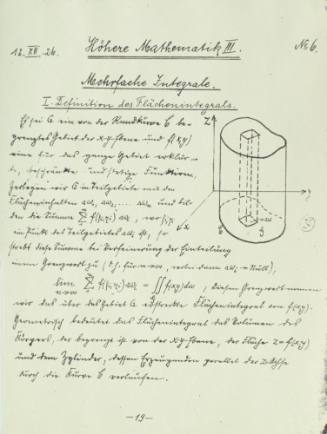 12. XII. 26.
Höhere Mathematik III.
No 6.
Mehrfache Integrale.
I. Definition des Flächenintegrals.
Es sei G ein von der Randkurve C be-
grenztes Gebiet der x-y-Ebene und f(x,y)
eine für das ganze Gebiet erklär-
te, beschränkte und stetige Funktion.
Zerlegen wir G in Teilgebiete mit den
Flächeninhalten
und bil-
den die Summe
ein Punkt des Teilgebietes ist, so
strebt diese Summe bei Verfeinerung der Einteilung
einem Grenzwert zu
diesen Grenzwert nennen
wir das über das Gebiet G erstreckte Flächenintegral von f(x,y).
Geometrisch bedeutet das Flächenintegral das Volumen des
Körpers, der begrenzt ist von der x-y-Ebene, der Fläche Z = f(x,y)
und dem Zylinder, dessen Erzeugenden parallel der Z-Achse
durch die Kurve C verlaufen.
Z
y
x
- 19 -